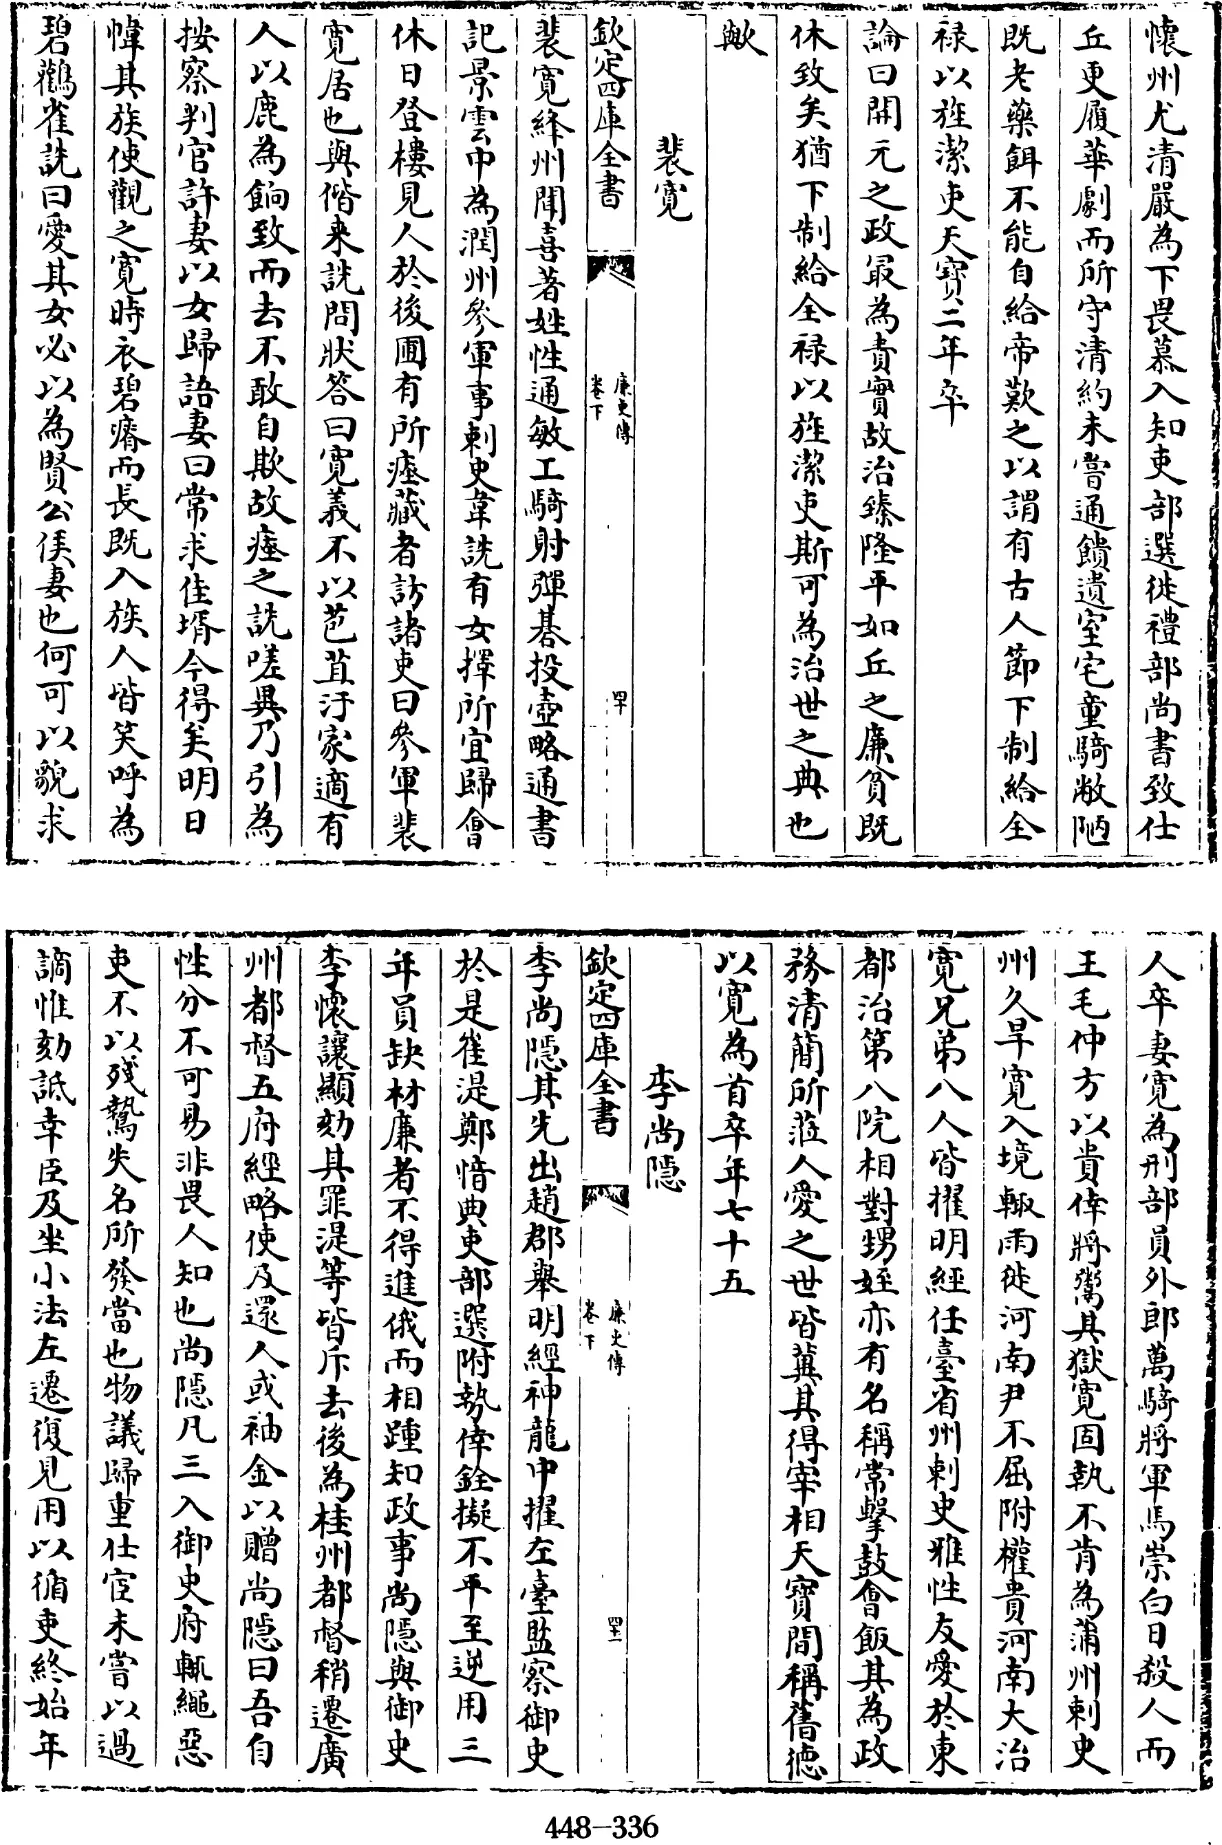 懷州尤清嚴為下畏慕入知吏部選徙禮部尚書致仕
丘更履華劇而所守清約未嘗通饋遺室宅童騎敝陋
既老藥餌不能自給帝歎之以謂有古人節下制給全
祿以旌潔吏天寳二年卒
論曰開元之政最為責實故治臻隆平如丘之廉貧既
休致矣猶下制給全祿以旌潔吏斯可為治世之典也
歟
裴寛
欽定四庫全書
廉吏傳
卷下
四十
裴寛絳州聞喜著姓性通敏工騎射彈棊投壺略通書
記景雲中為潤州參軍事刺史韋詵有女擇所宜歸會
休日登樓見人於後圃有所瘞藏者訪諸吏曰參軍裴
寛居也與偕来詵問狀答曰寛義不以苞苴汙家適有
人以鹿為餉致而去不敢自欺故瘞之詵嗟異乃引為
按察判官許妻以女歸語妻曰常求佳壻今得矣明日
幃其族使觀之寛時衣碧瘠而長既入族人皆笑呼為
碧鸛雀詵曰愛其女必以為賢公侯妻也何可以貌求
人卒妻寛為刑部員外郎萬騎將軍馬崇白日殺人而
王毛仲方以貴倖將鬻其獄寛固執不肯為蒲州刺史
州久旱寛入境輙雨徙河南尹不屈附權貴河南大治
寛兄弟八人皆擢明經任臺省州刺史雅性友愛於東
都治第八院相對甥姪亦有名稱常擊鼓會飯其為政
務清簡所蒞人愛之世皆冀其得宰相天寳間稱舊德
以寛為首卒年七十五
李尚隱
欽定四庫全書
廉吏傳
卷下
四十一
李尚隱其先出趙郡舉明經神龍中擢左臺監察御史
於是崔湜鄭愔典吏部選附勢倖銓擬不平至逆用三
年員缺材廉者不得進俄而相踵知政事尚隱與御史
李懷讓顯劾其罪湜等皆斥去後為桂州都督稍遷廣
州都督五府經略使及還人或袖金以贈尚隱曰吾自
性分不可易非畏人知也尚隱凡三入御史府輒繩惡
吏不以殘鷙失名所發當也物議歸重仕宦未嘗以過
謫惟劾詆幸臣及坐小法左遷復見用以循吏終始年
448-336